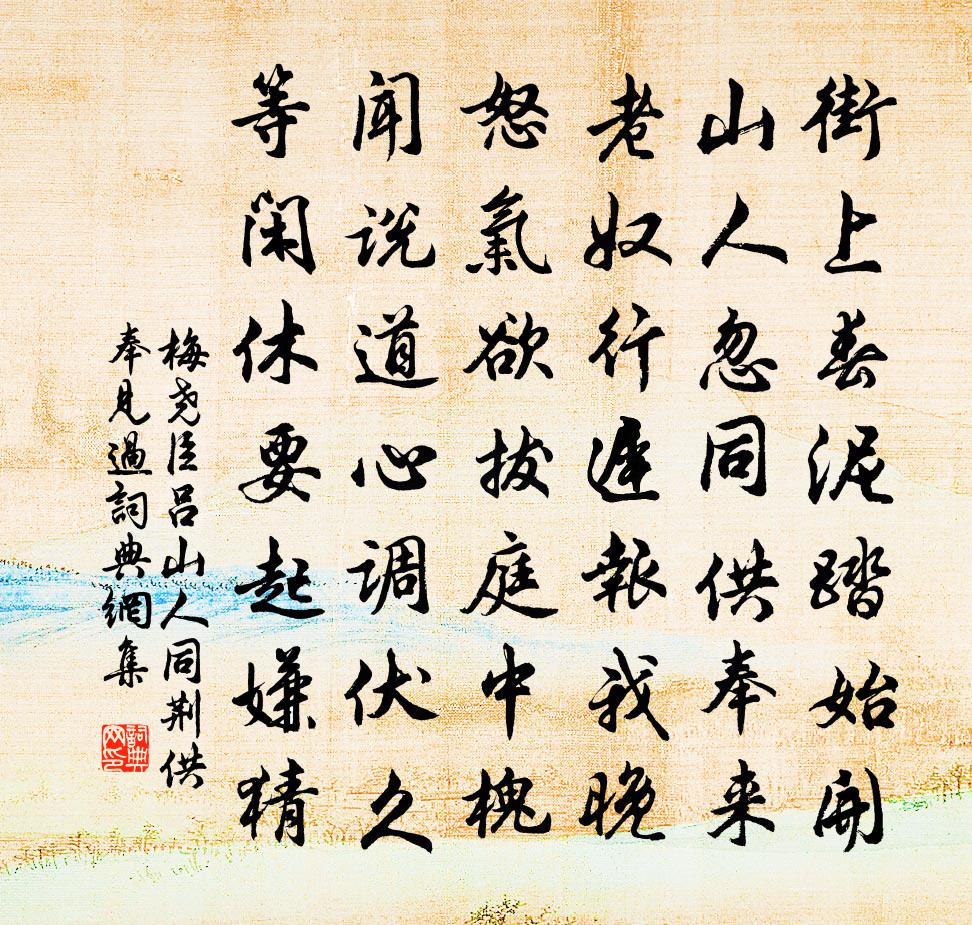 街上春泥踏始開
山人忽同供奉来
老奴行遲報我晚
怒氣欲拔庭中槐
闻说道心调伏久
等闲休要起嫌猜
梅尧臣吕山人同荆供
奉見過詞典網集
詞典
网印